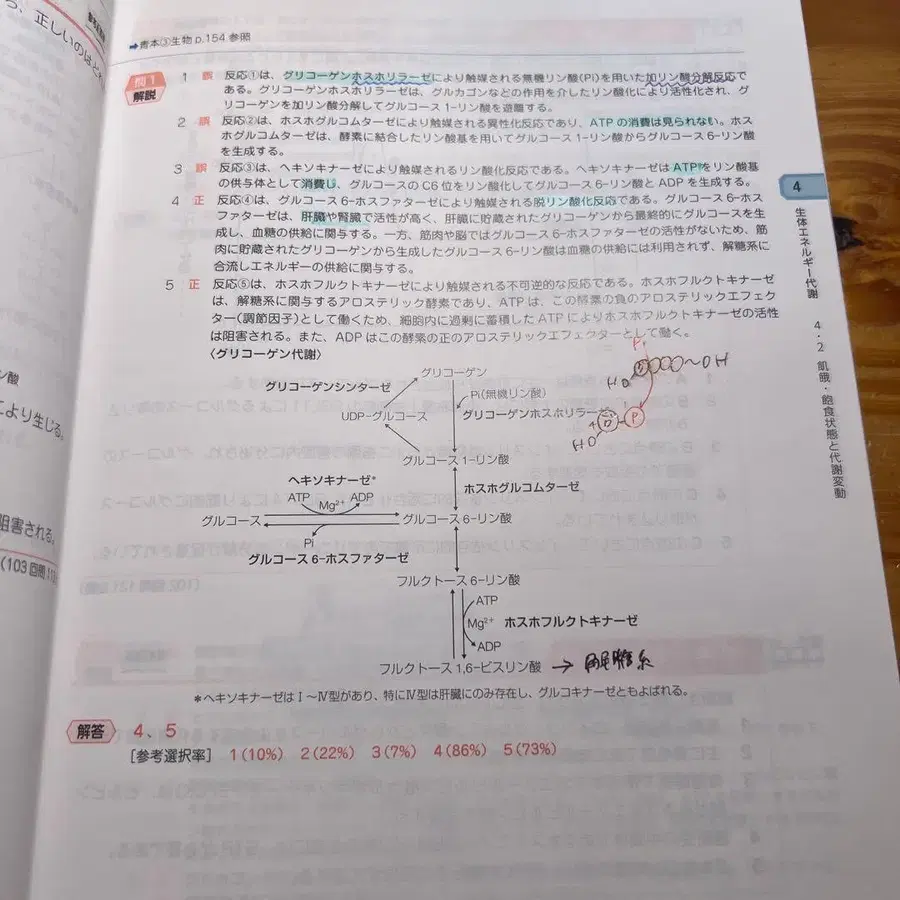 ら、正しいのはどれ
➡青本③生物 p.154 参照
問1
解説
1 誤 反応①は、グリコーゲンホスホリラーゼにより触媒される無機リン酸(Pi)を用いた加リン酸分解反応で
ある。グリコーゲンホスホリラーゼは、グルカゴンなどの作用を介したリン酸化により活性化され、グ
リコーゲンを加リン酸分解してグルコース 1-リン酸を遊離する。
2 誤 反応②は、ホスホグルコムターゼにより触媒される異性化反応であり、ATP の消費は見られない。ホス
ホグルコムターゼは、酵素に結合したリン酸基を用いてグルコース 1-リン酸からグルコース 6-リン酸
を生成する。
3 誤 反応③は、ヘキソキナーゼにより触媒されるリン酸化反応である。ヘキソキナーゼは ATP をリン酸基
の供与体として消費し、グルコースの C6 位をリン酸化してグルコース 6-リン酸と ADP を生成する。
4 正 反応④は、グルコース 6-ホスファターゼにより触媒される脱リン酸化反応である。グルコース 6-ホス
ファターゼは、肝臓や腎臓で活性が高く、肝臓に貯蔵されたグリコーゲンから最終的にグルコースを生
成し、血糖の供給に関与する。一方、筋肉や脳ではグルコース 6-ホスファターゼの活性がないため、筋
肉に貯蔵されたグリコーゲンから生成したグルコース 6-リン酸は血糖の供給には利用されず、解糖系に
合流しエネルギーの供給に関与する。
5 正 反応⑤は、ホスホフルクトキナーゼにより触媒される不可逆的な反応である。ホスホフルクトキナーゼ
は、解糖系に関与するアロステリック酵素であり、ATP は、この酵素の負のアロステリックエフェク
ター(調節因子)として働くため、細胞内に過剰に蓄積した ATP によりホスホフルクトキナーゼの活性
は阻害される。また、ADP はこの酵素の正のアロステリックエフェクターとして働く。
〈グリコーゲン代謝〉
グリコーゲン
グリコーゲンシンターゼ
Pi(無機リン酸)
UDP-グルコース
グリコーゲンホスホリラーゼ
グルコース 1-リン酸
ヘキソキナーゼ*
ホスホグルコムターゼ
ATP Mg²⁺ ADP
グルコース
グルコース 6-リン酸
Pi
グルコース 6-ホスファターゼ
フルクトース 6-リン酸
ATP
Mg²⁺ ホスホフルクトキナーゼ
ADP
フルクトース 1,6-ビスリン酸 → 解糖系
Pi
HO
OH
P
HO
*ヘキソキナーゼはⅠ〜Ⅳ型があり、特にⅣ型は肝臓にのみ存在し、グルコキナーゼともよばれる。
解答 4、5
[参考選択率] 1(10%) 2(22%) 3(7%) 4(86%) 5(73%)
4
生体エネルギー代謝
4・2 飢餓・飽食状態と代謝変動
ン酸
により生じる。
阻害される。
(103 回問